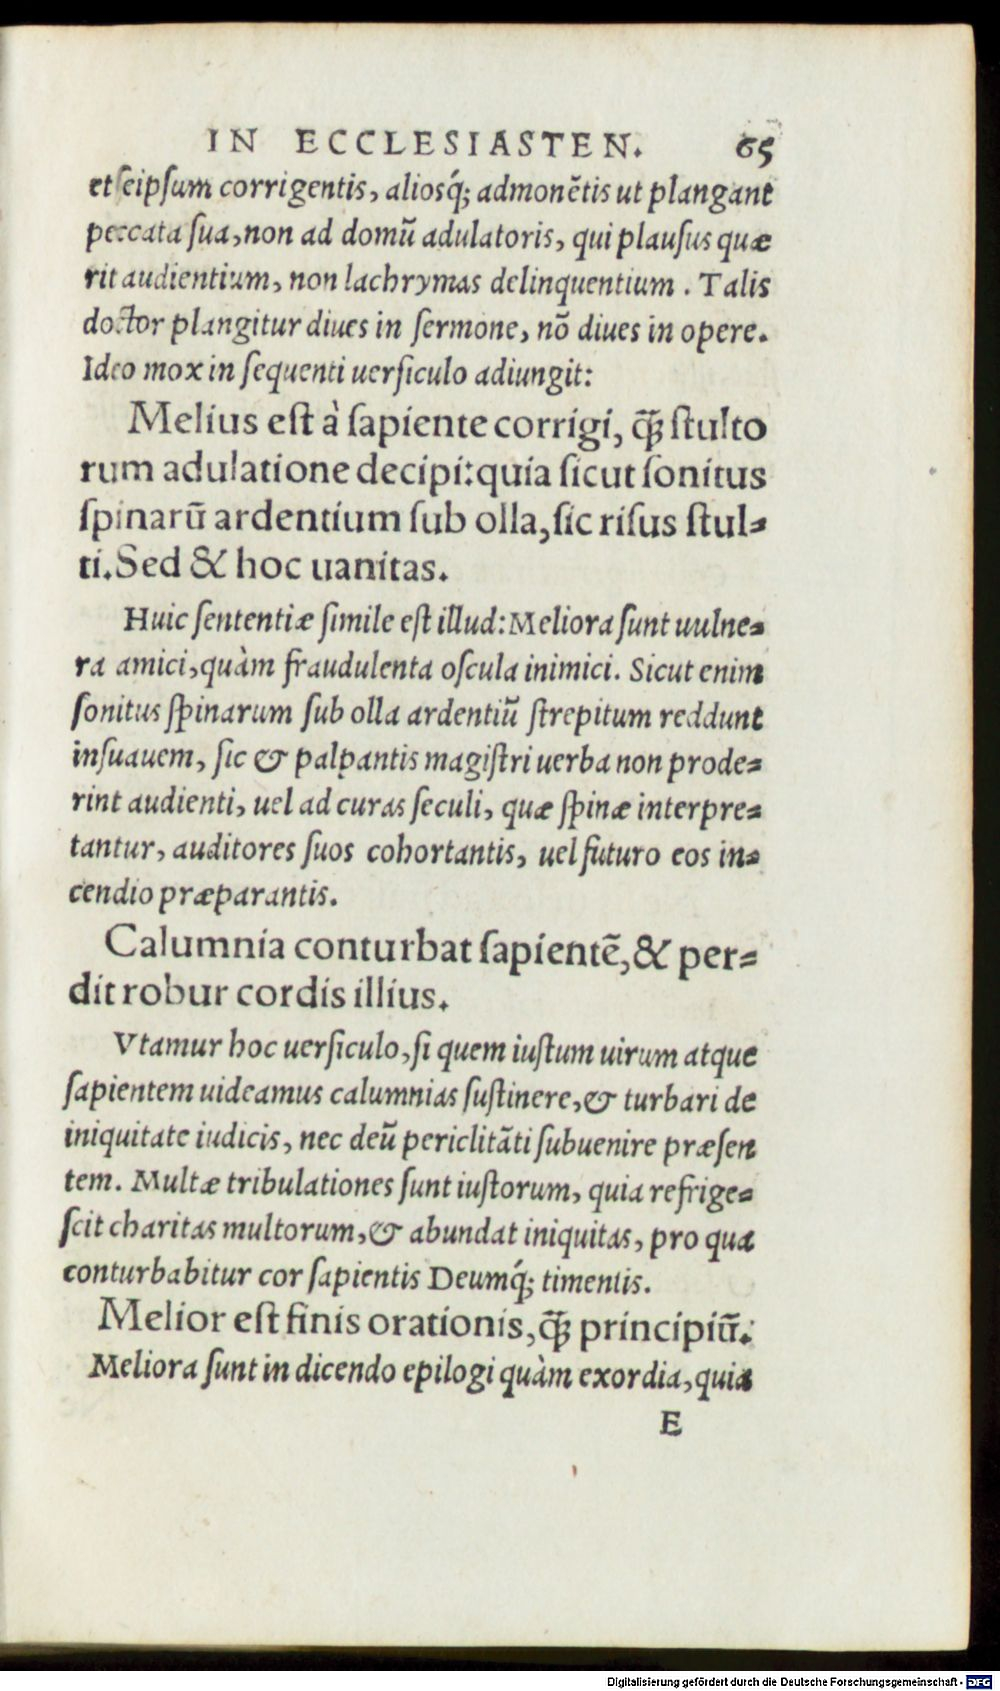 IN ECCLESIASTEN. 65
et seipsum corrigentis, aliosq́; admonẽtis ut plangant
peccata sua, non ad domũ adulatoris, qui plausus quæ
rit audientium, non lachrymas delinquentium . Talis
doctor plangitur diues in sermone, nõ diues in opere.
Ideo mox in sequenti uersiculo adiungit:
Melius est à sapiente corrigi, q̃ꝫ stulto
rum adulatione decipi: quia sicut sonitus
spinarũ ardentium sub olla, sic risus stul-
ti. Sed & hoc uanitas.
Huic sententiæ simile est illud: Meliora sunt uulne-
ra amici, quàm fraudulenta oscula inimici. Sicut enim
sonitus spinarum sub olla ardentiũ strepitum reddunt
insuauem, sic & palpantis magistri uerba non prode-
rint audienti, uel ad curas seculi, quæ spinæ interpre-
tantur, auditores suos cohortantis, uel futuro eos in-
cendio præparantis.
Calumnia conturbat sapientẽ, & per-
dit robur cordis illius.
Vtamur hoc uersiculo, si quem iustum uirum atque
sapientem uideamus calumnias sustinere, & turbari de
iniquitate iudicis, nec deũ periclitãti subuenire præsen
tem. Multæ tribulationes sunt iustorum, quia refrige-
scit charitas multorum, & abundat iniquitas, pro qua
conturbabitur cor sapientis Deumq́; timentis.
Melior est finis orationis, q̃ꝫ principiũ.
Meliora sunt in dicendo epilogi quàm exordia, quia
E
Digitalisierung gefördert durch die Deutsche Forschungsgemeinschaft - DFG